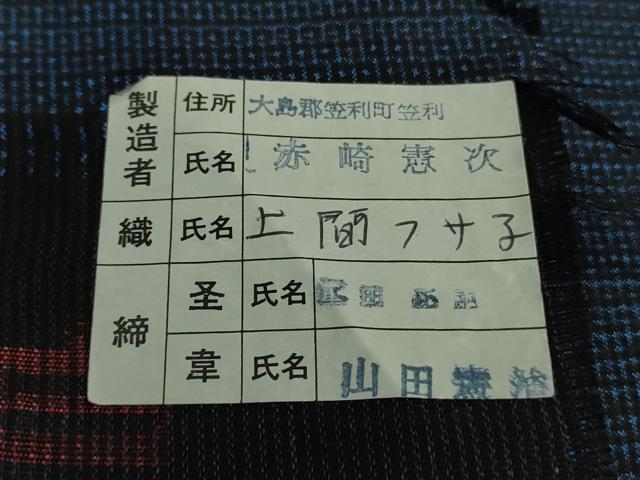 製造者 住所 大島郡笠利町笠利
氏名 赤崎憲次
織 氏名 上間フサ子
締 圣 氏名
韋 氏名 山田憲治